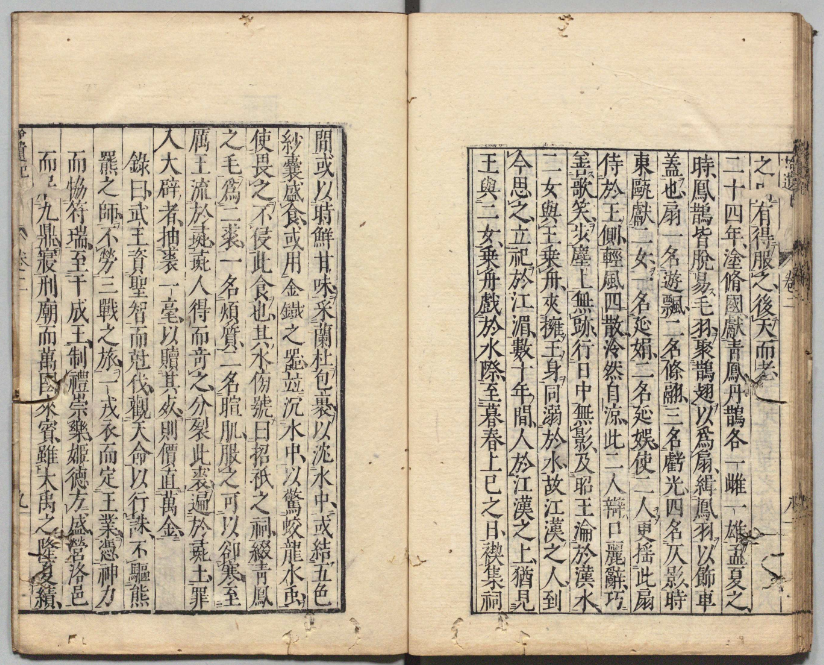 之 有得服之後天而老
二十四年塗脩國獻青鳳丹鵲各一雌一雄孟夏之
時鳳鵲皆脫易毛羽聚鵲翅以爲扇緝鳳羽以飾車
蓋也扇一名遊飄二名條翮三名虧光四名仄影時
東甌獻二女一名延娟二名延娛使二人更搖此扇
侍於王側輕風四散泠然自涼此二人辯口麗辭巧
善歌笑步塵上無跡行日中無影及昭王淪於漢水
二女與王乗舟夾擁王身同溺於水故江漢之人到
今思之立祀於江湄數十年間人於江漢之上猶見
王與二女乗舟戲於水際至暮春上巳之日禊集祠
間或以時鮮甘味采蘭杜包裹以沈水中或結五色
紗囊盛食或用金鐵之器並沉水中以驚蛟龍水蟲
使畏之不侵此食也其水傍號曰招祇之祠綴青鳳
之毛爲二裘一名煩質二名暄肌服之可以卻寒至
厲王流於彘彘人得而奇之分裂此裘遍於彘土罪
入大辟者抽裘一毫以贖其死則價直萬金
錄曰武王資聖智而尅伐觀天命以行誅不驅熊
羆之師不勞三戰之旅一戎衣而定王業憑神力
而協符瑞至于成王制禮崇樂姬德方盛營洛邑
而 九鼎寢刑廟而萬國來賓雖大禹之隆夏績